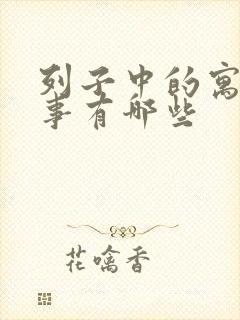 列子中的寓
事有哪些
花噙香